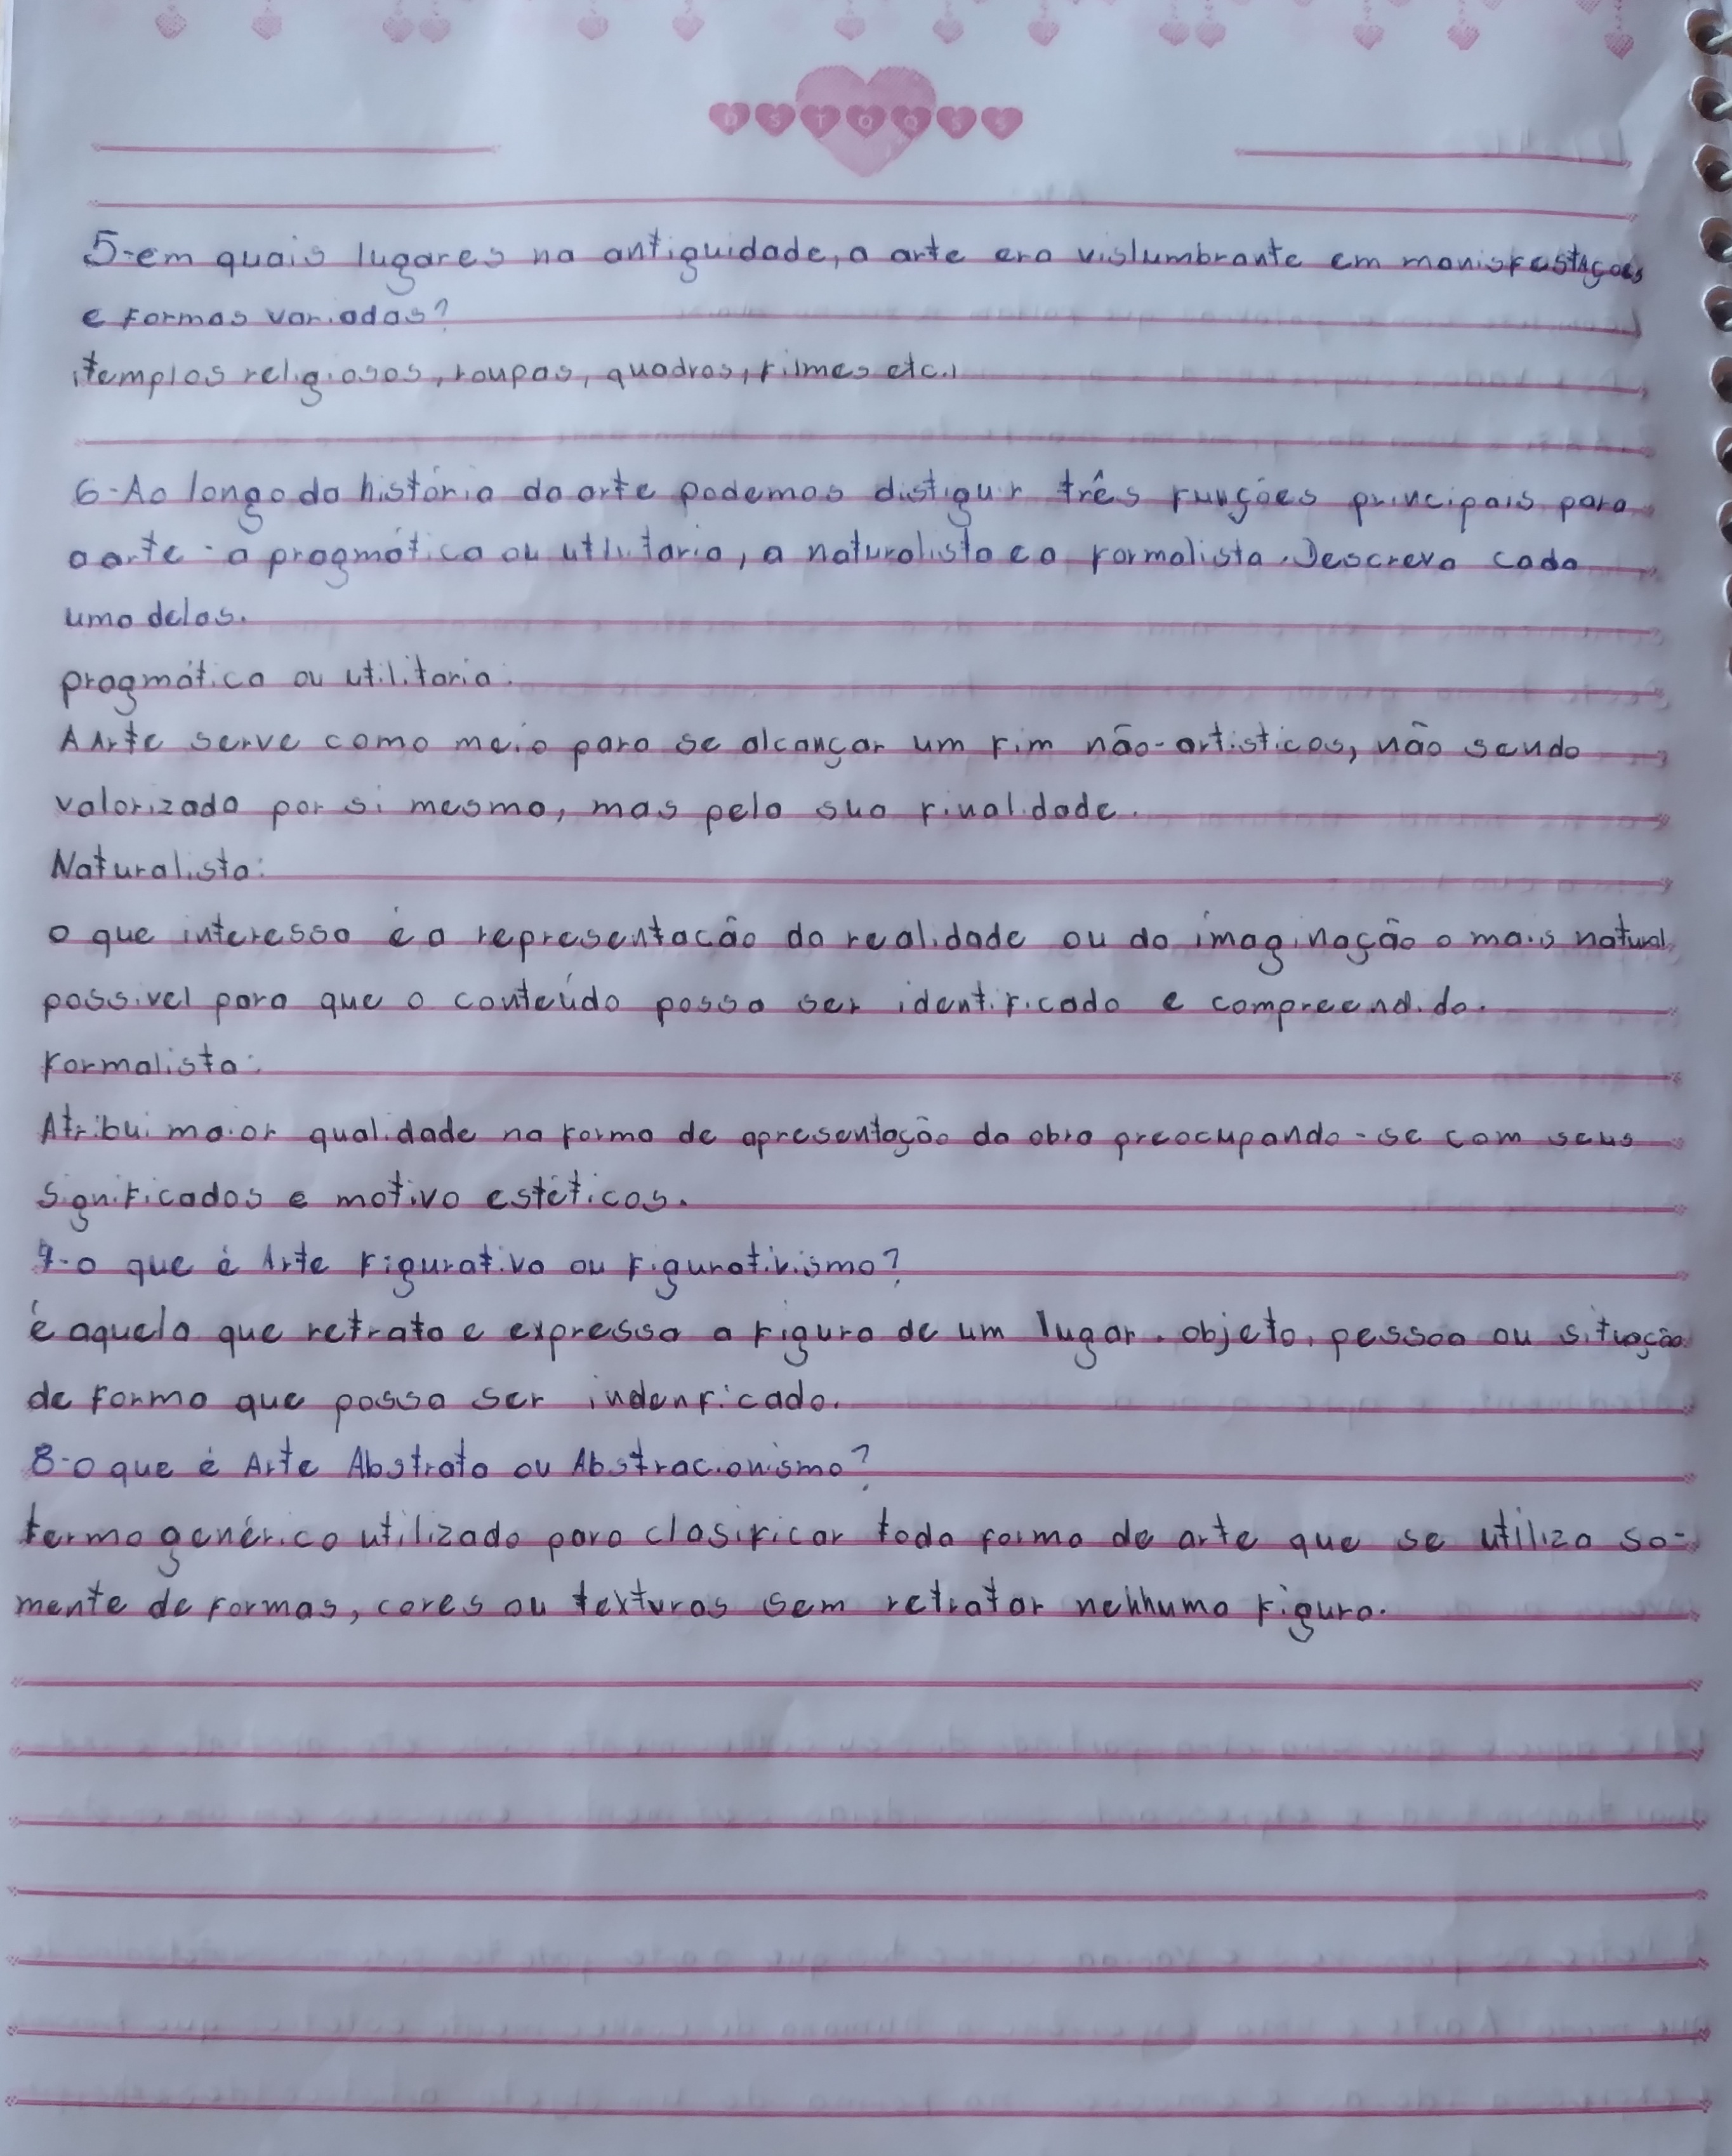 D S T Q Q S S
5-em quais lugares na antiguidade, a arte era vislumbrante em manisfestações
e formas variadas?
templos religiosos, roupas, quadros, filmes etc.
6-Ao longo da história da arte podemos distiguir três funções principais para
a arte - a pragmática ou utilitaria, a naturalista e a formalista. Descreva cada
uma delas.
pragmática ou utilitaria:
A Arte serve como meio para se alcançar um fim não-artisticos, não sendo
valorizado por si mesmo, mas pela sua finalidade.
Naturalista:
o que interessa é a representacão da realidade ou da imaginação o mais natural
possivel para que o conteúdo possa ser identificado e compreendido.
formalista:
Atribui maior qualidade na forma de apresentação da obra preocupando-se com seus
significados e motivo estéticos.
7-o que é Arte figurativa ou figurativismo?
é aquela que retrata e expressa a figura de um lugar, objeto, pessoa ou situação
de forma que possa ser indenficado.
8-o que é Arte Abstrata ou Abstracionismo?
termo genérico utilizado para clasificar toda forma de arte que se utiliza so-
mente de formas, cores ou texturas sem retratar nehhuma figura.